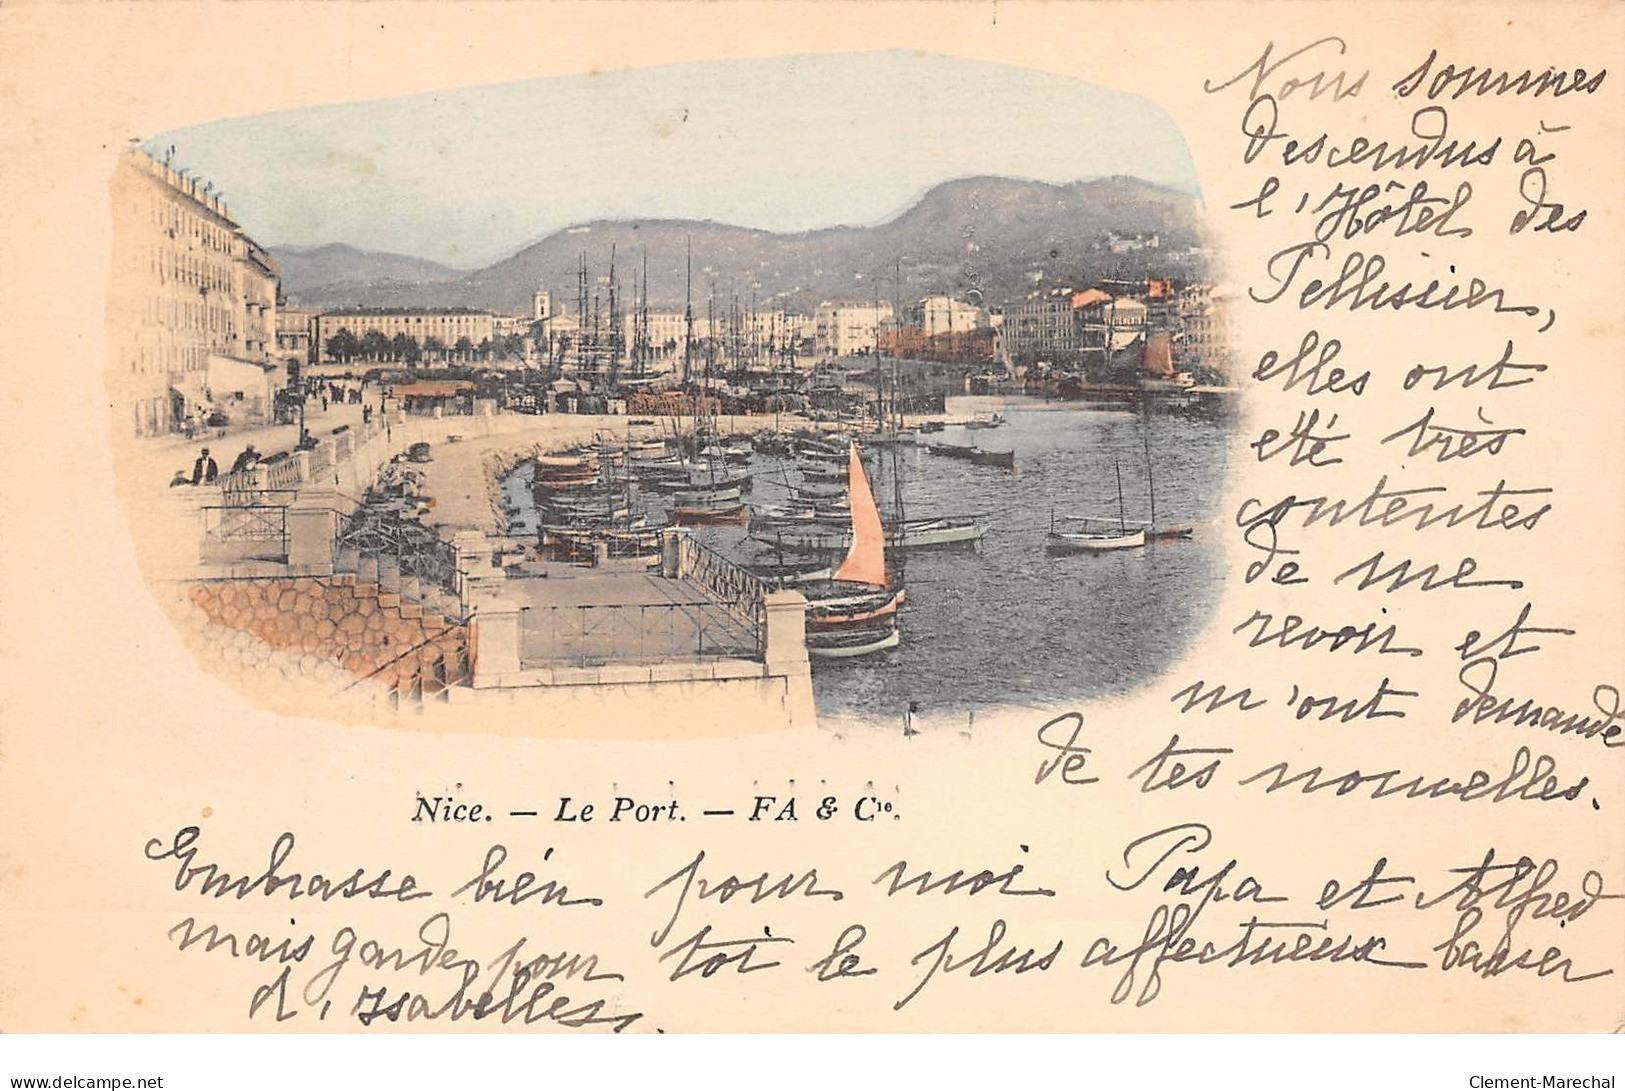 Nous sommes
descendus à
l'Hôtel des
Pellissier,
elles ont
été très
contentes
de me
revoir et
m'ont demandé
de tes nouvelles.
Nice. — Le Port. — FA & Cie.
Embrasse bien pour moi Papa et Alfred
mais garde pour toi le plus affectueux baiser
d'Isabelles.
delcampe.net
Clement-Marechal